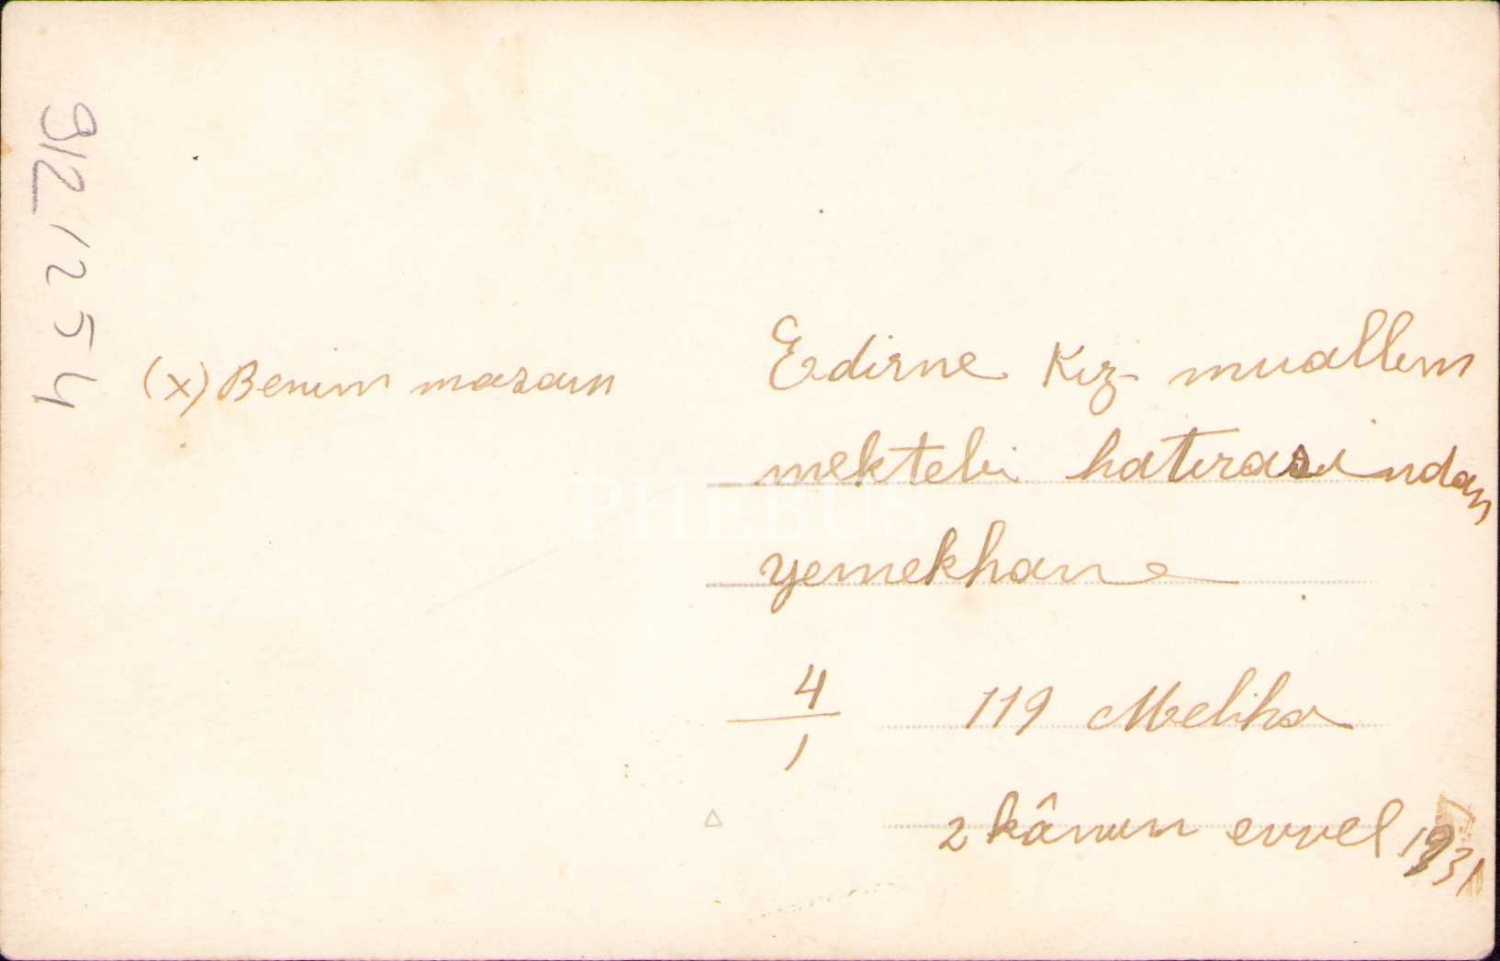 912/254
(x) Benim masam
Edirne Kız muallim
mektebi hatırasından
yemekhane
PHEBUS
4
1
119 Meliha
2 kânun evvel 1931